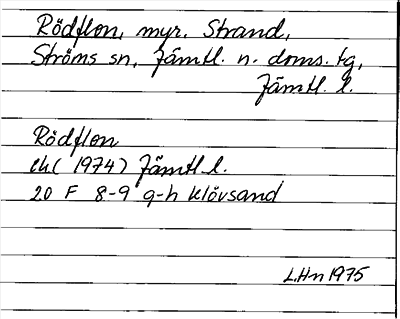 Rödflon, myr. Strand,
Ströms sn, Jämtl. n. doms. tg,
Jämtl. l.
Rödflon
ek( 1974) Jämtl l.
20 F 8-9 g-h Klövsand
L.Hn 1975